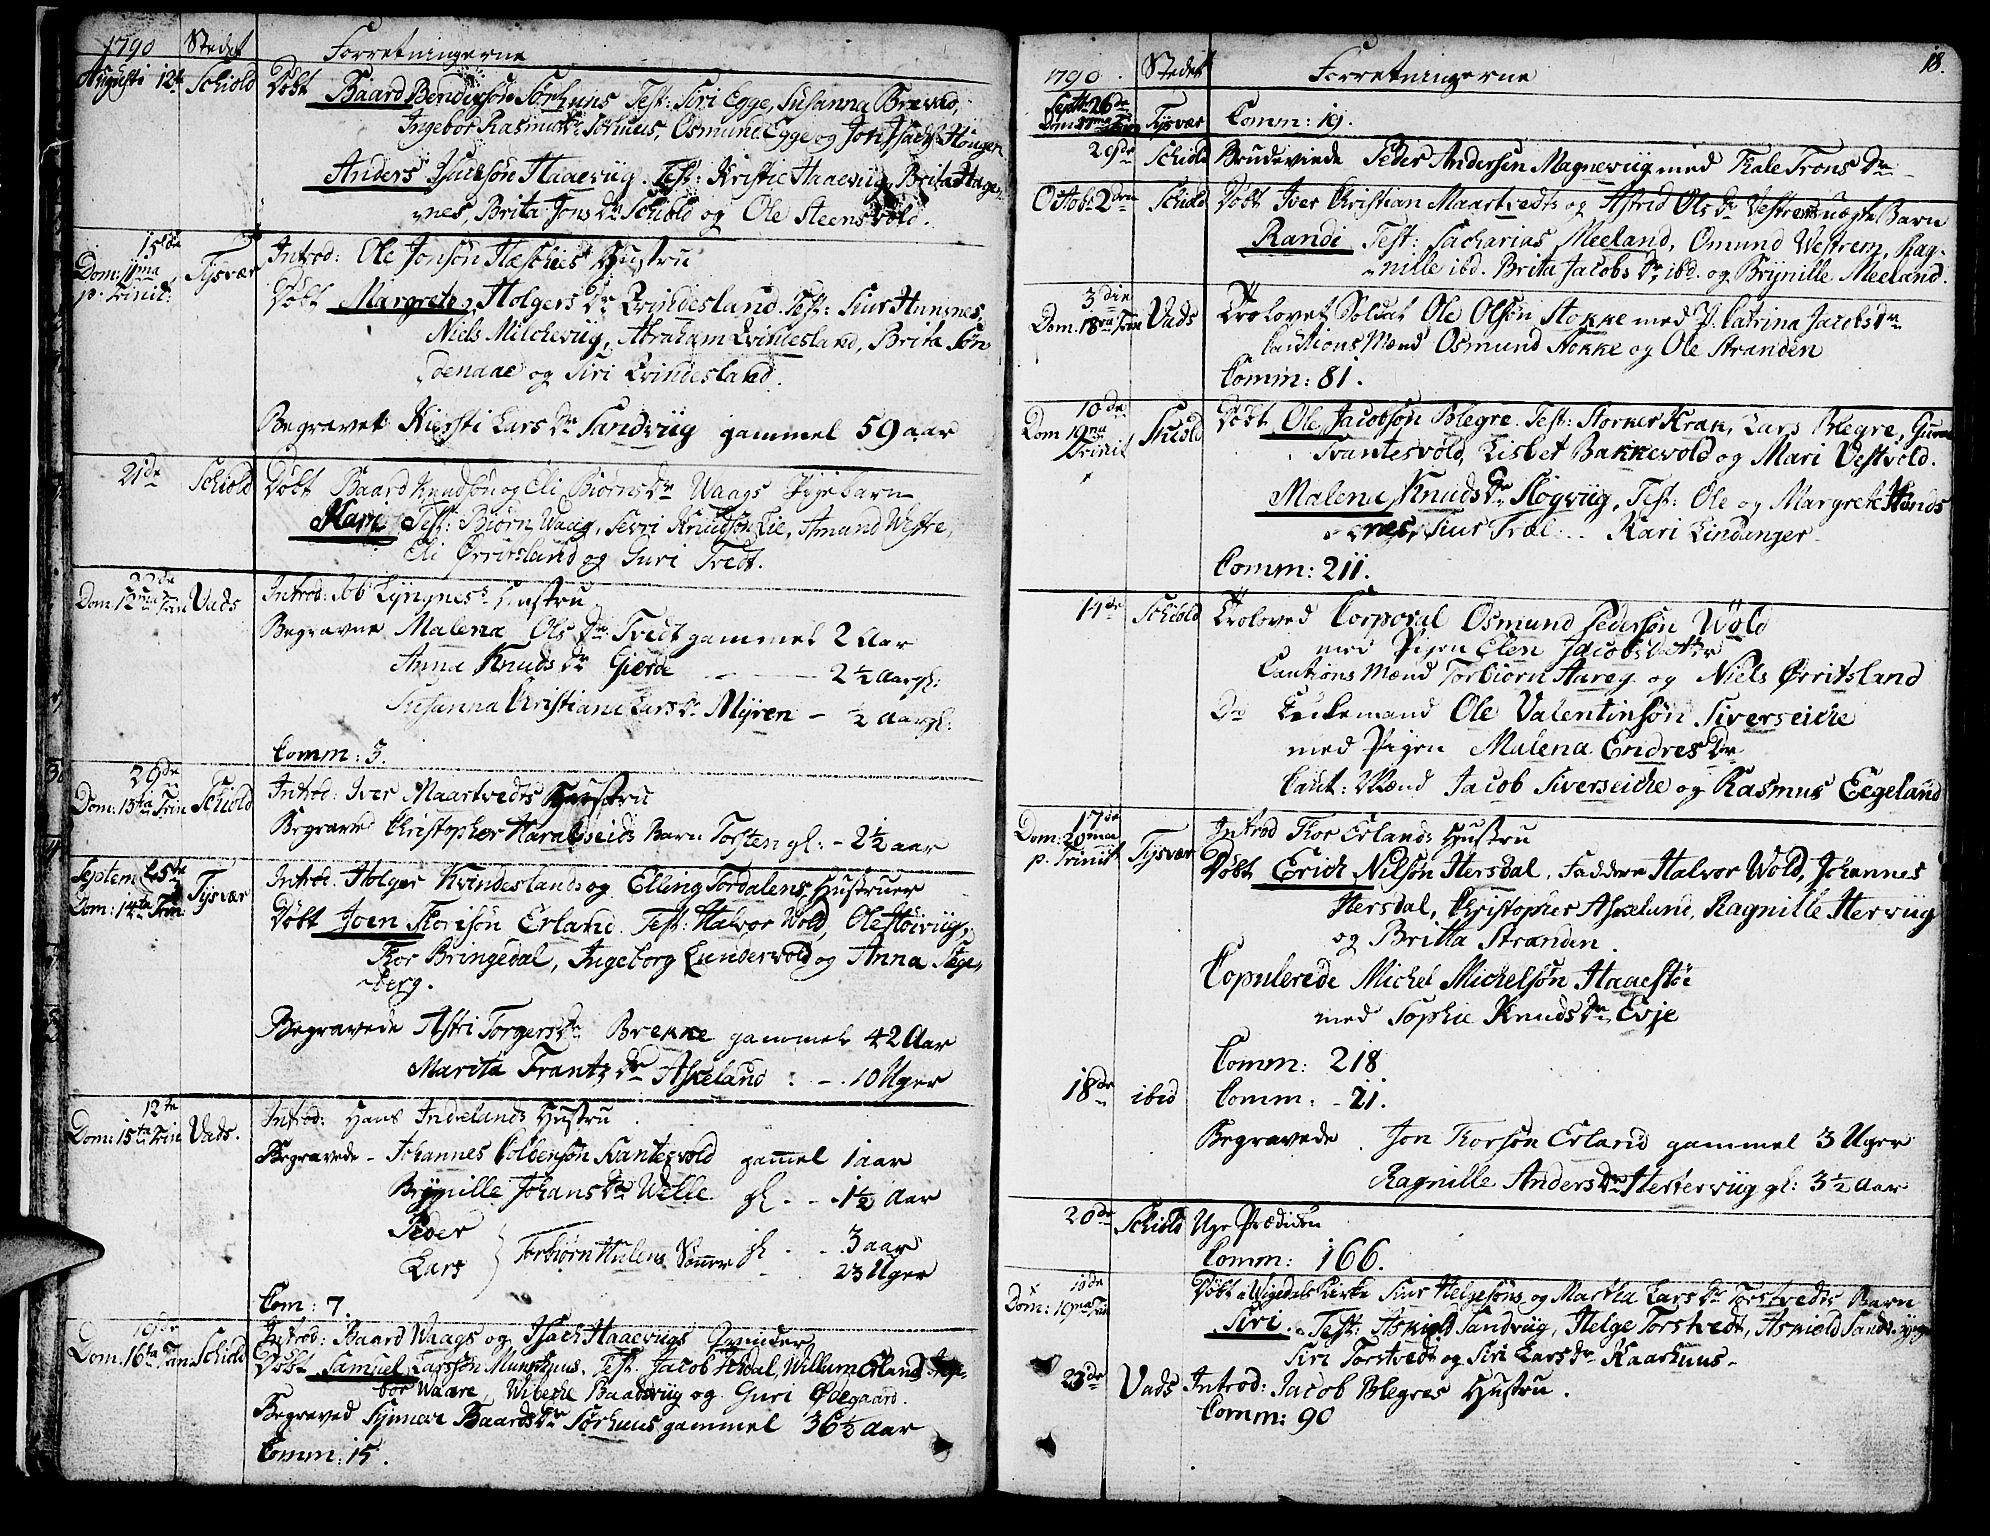 1790 Stedet Forretningerne
Augusti 12te Schiold Døbt Baard Bendixsøn Sørhuus Test: Siri Egge, Susanna
Ingebor Rasmusdr Sørhuus, Osmund Egge og Jon Isachs. Hougen
Anders Isacsøn Haaeviig. Test: Kristie Haaeviig, Brita Hage-
nes, Brita Jons Dr Schiold og Ole Steensvold.
15de Dom: 11ma p. Trinit: Tysvær Introd: Ole Jonsøn Hustru
Døbt Margrete, Holgers Dr Qvindesland. Test: Siur Hunsnes
Niels Milcheviig, Abraham Qvindesland, Brita Søn
denaae og Siri Qvindesland.
Begravet Kirsti Lars Dr Sandviig gammel 59 aar
21de Schiold Døbt Baard Knudsøn og Eli Biørns Dr Waags Pigebarn
Kari Test: Biørn Waag, Sevri Knudsøn Lie, Amund Westre,
Eli Ørritsland og Guri Tredt.
22de Dom: 12ma Trin Vads Introd: Lyngnes's Hustru
Begravne Malena Ols Dr Tvedt gammel 2 Aar
Anna Knuds Dr Gierde 2½ Aar gl:
Susanna Christiane Lars Dr Myren - ½ Aar gl:
Comm: 3.
29de Dom: 13tia Trin Schiold Introd: Iver Maartvedts Hustru
Begravet Christopher Haraldseids Barn Torsten gl: - 2½ aar
Septem 5te Dom: 14ta Trin: Tysvær Introd. Holger Kvindeslands og Elling Tordalens Hustruer
Døbt Joen Thorisøn Erland. Test: Halvor Wold, Ole Støiviig,
Thor Bringedal, Ingeborg Lundervold og Anna Stege-
berg.
Begravede Astri Torgers Dr Brekke gammel 42 Aar
Marita Frantz Dr Askeland : - . 10 Uger
12te Dom: 15ta Trin Vads. Introd: Hans Indrelands Hustru.
Begravede - Johannes Coldensøn Svantesvold gammel 1 aar
Brynille Johans Dr Welle gl. - - 1½ Aar
Peder - 3 aar
Lars Torbiørn Hulens Sønner gl. - 23 Uger
Com: 7.
19de Dom: 16ta Trin Schiold Introd: Baard Waags og Isach Haaevigs Qvinder
Døbt Samuel Larssøn Munkhuus. Test. Jacob Hesdal, Willum Erland, Inge-
bor Waare, Wibeche Baadsviig og Guri Ødegaard.
Begraved Synneve Baards Dr Sørhuus gammel 36½ Aar
Comm: 15.
18.
1790. Stedet Forretningerne
Septbr 26de Dom: 17ma Trin Tysvær Comm: 19.
29de Schiold Brudeviede Peder Andersen Magneviig med Kale Trons Dr
Octobr 2den Schiold Døbt Iver Christian Maartvedts og Astrid Ols Dr Vestrems uægte Barn
Randi Test: Sacharias Meeland, Omund Vestrem, Rag-
nille ibd. Brita Jacobs Dr ibd. og Brynille Meeland.
3die Dom. 18va Trin Vads Trolovet Soldat Ole Olsøn Stokke med P. Catrina Jacobs Dr
Cautions Mænd Osmund Stokke og Ole Stranden
Comm: 81.
10de Dom 19na Trinit Skiold Døbt Ole Jacobsøn Blegre. Test: Storker Krak, Lars Blegre, Guro
Svantesvold, Lisbet Bakkevold og Mari Vestvold.
Malena Knuds Dr Skogviig, Test: Ole og Margrete Hunds
nes, Siur Træl. . Kari Lindanger
Comm: 211.
14de Schiold Troloved Corporal Osmund Pedersøn Wold
med Pigen Elen Jacobsdatter
Cautions Mænd Torbiørn Aareg og Niels Ørritsland
Do Enckemand Ole Valentinsøn Siverseiche
med Pigen Malena Endres Dr
Caut: Mænd Jacob Siverseiche og Rasmus Eegeland
17de Dom: 20ma p. Trinit Tysvær Introd Thor Erlands Hustru
Døbt Erich Nilsøn Hersdal, Faddere Halvor Wold, Johannes
Hersdal, Christopher Askelund, Ragnille Herviig
og Britta Stranden.
Copulerede Michel Michelsøn Haaestøe
med Sophie Knuds Dr Evje
Comm: 218
18de ibid Comm: - 21.
Begravede Jon Thorsøn Erland gammel 3 Uger
Ragnille Anders Dr Hesterviig gl: 3½ Aar
20de Schiold Uge Prædiken
Comm: 166.
Dom: 19na Trin Døbt i Wigedals Kirke Siur Helgesøns og Martha Lars Dr Torstvedts Barn
Siri. Test: Askiold Sandviig, Helge Torstvedt, Askiold
Siri Torstvedt og Siri Lars Dr Kaarhuus.
23de Vads Introd: Jacob Blegres Hustru.
Comm: 90